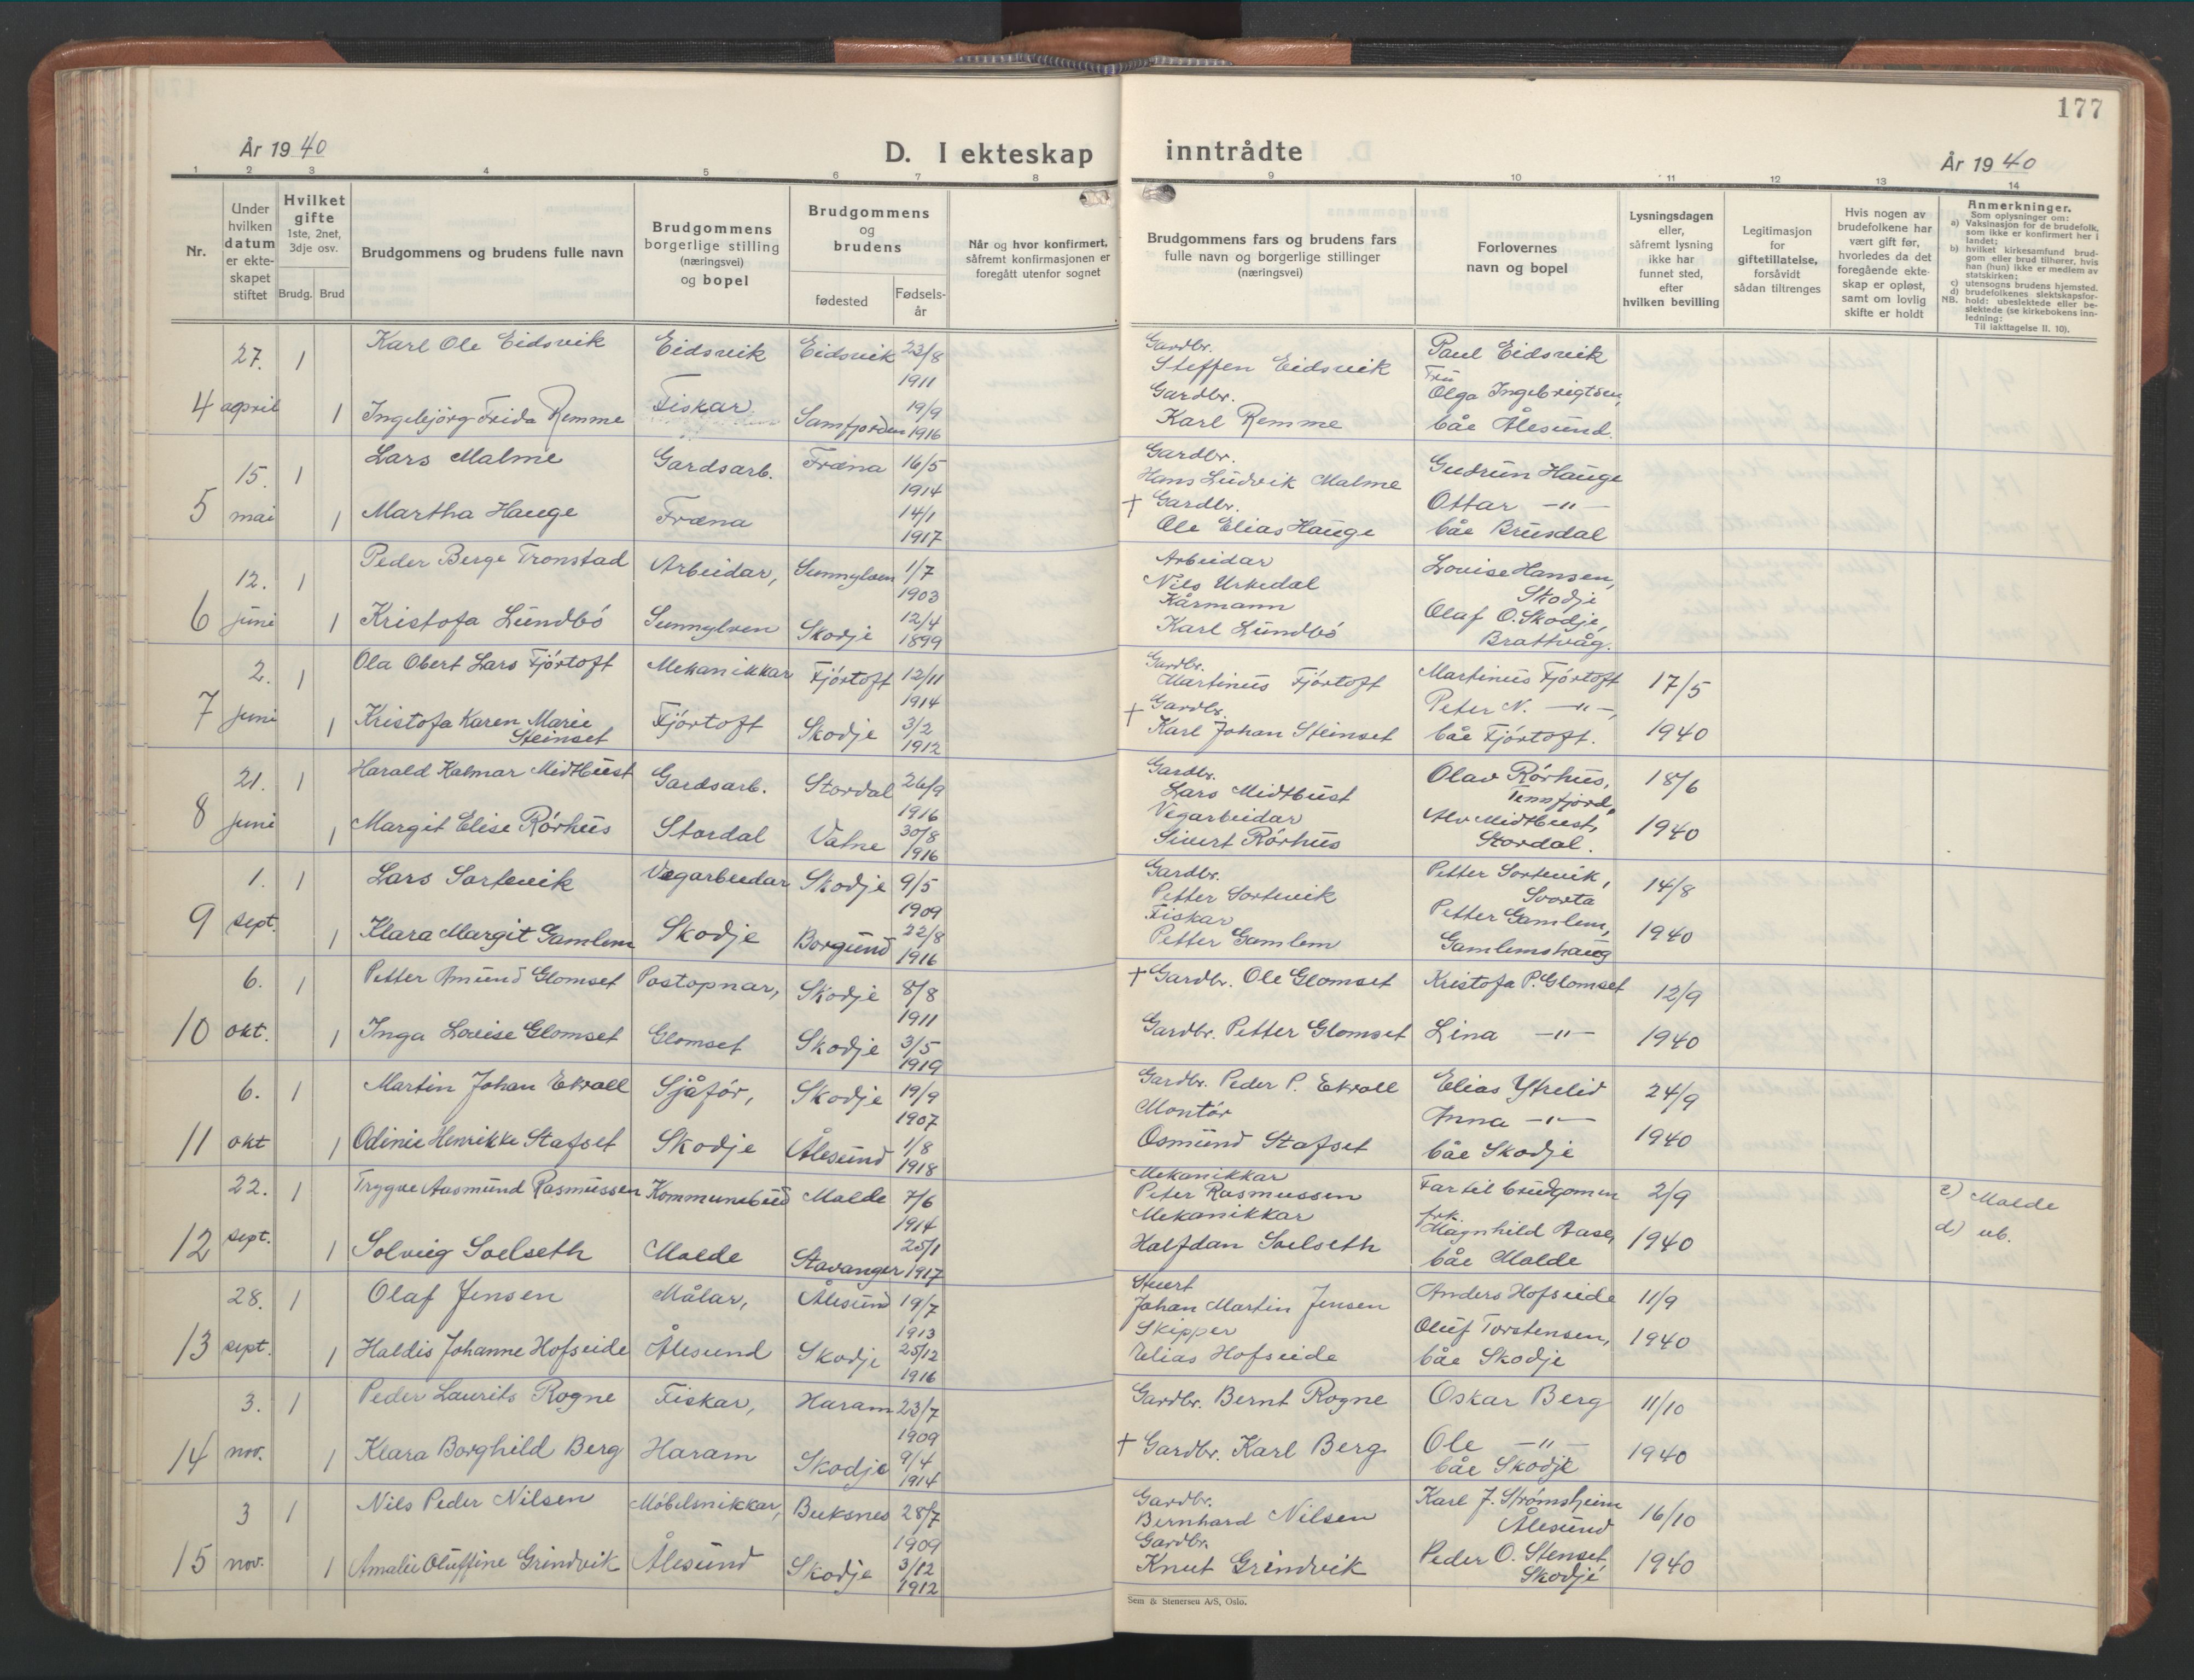 177
År 1940
D. I ekteskap
inntrådte
År 1940
1 2 3 4 5 6 7 8 9 10 11 12 13 14
Nr.
Under hvilken datum er ekte- skapet stiftet
Hvilket gifte 1ste, 2net, 3dje osv.
Brudg. Brud
Brudgommens og brudens fulle navn
Brudgommens borgerlige stilling (næringsvei) og bopel
Brudgommens og brudens
fødested
Fødsels- år
Når og hvor konfirmert, såfremt konfirmasjonen er foregått utenfor sognet
Brudgommens fars og brudens fars fulle navn og borgerlige stillinger (næringsvei)
Forlovernes navn og bopel
Lysningsdagen eller, såfremt lysning ikke har funnet sted, efter hvilken bevilling
Legitimasjon for giftetillatelse, forsåvidt sådan tiltrenges
Hvis nogen av brudefolkene har vært gift før, hvorledes da det foregående ekte- skap er opløst, samt om lovlig skifte er holdt
Anmerkninger.
Som oplysninger om:
a) Vaksinasjon for de brudefolk, som ikke er konfirmert her i landet;
b) hvilket kirkesamfund brud- gom eller brud tilhører, hvis han (hun) ikke er medlem av statskirken;
c) utensogns brudens hjemsted.
d) brudefolkenes slektskapsfor- hold: ubeslektede eller be- slektede (se kirkebokens inn- ledning:
NB.
Til iakttagelse II. 10).
27. 1 Karl Ole Eidsvik Eidsvik Eidsvik 23/8 1911 Gardbr. Steffen Eidsvik Paul Eidsvik
4 april 1 Ingebjörg Frida Remme Fiskar Samfjorden 19/9 1916 Gardbr. Karl Remme Frü Olga Ingebrigtsen, båe Ålesund.
15. 1 Lars Malme Gardsarb. Fræna 16/5 1914 Gardbr. Hans Ludvik Malme Gudrun Hauge
5 mai 1 Martha Hauge Fræna 14/1 1917 † Gardbr. Ole Elias Hauge Ottar —"— båe Brusdal
12. 1 Peder Berge Tronstad Arbeidar, Sunnylven 1/7 1903 Arbeidar Nils Urkedal Louise Hansen, Skodje
6 juni 1 Kristofa Lundbö Sunnylven Skodje 12/4 1899 Kårmann Karl Lundbö Olaf O. Skodje, Brattvåg.
2. 1 Ola Obert Lars Fjörtoft Mekanikkar Fjörtoft 12/11 1914 Gardbr. Martinus Fjörtoft Martinus Fjörtoft 17/5
7 juni 1 Kristofa Karen Marie Steinset Fjörtoft Skodje 3/2 1912 † Gardbr. Karl Johan Steinset Peter N. —"—, båe Fjörtoft. 1940
21. 1 Harald Kalmar Midtbust Gardsarb. Stordal 26/9 1916 Gardbr. Lars Midtbust Olav Rörhus, Tennfjord, 18/6
8 juni 1 Margit Elise Rörhus Stordal Vatne 30/8 1916 Vegarbeidar Sivert Rörhus Alv Midtbust, Stordal. 1940
1. 1 Lars Sortevik Vegarbeidar Skodje 9/5 1909 Gardbr. Petter Sortevik Petter Sortevik, Svorta 14/8
9 sept. 1 Klara Margit Gamlem Skodje Borgund 22/8 1916 Fiskar Petter Gamlem Petter Gamlem, Gamlemshaug 1940
6. 1 Petter Amund Glomset Postopnar, Skodje 8/8 1911 † Gardbr. Ole Glomset Kristofa P. Glomset 12/9
10 okt. 1 Inga Louise Glomset Glomset Skodje 3/5 1919 Gardbr. Petter Glomset Lina —"— 1940
6. 1 Martin Johan Ekroll Sjåför, Skodje 19/9 1907 Gardbr. Peder P. Ekroll Elias Ytrelid 24/9
11 okt 1 Odinie Henrikke Stafset Skodje Ålesund 1/8 1918 Montör Osmund Stafset Anna —"— båe Skodje 1940
22. 1 Trygve Aasmund Rasmussen Kommunebud Molde 7/6 1914 Mekanikkar Peter Rasmussen Far til brudgomen 2/9 c) Molde
12 sept. 1 Solveig Soelseth Molde Stavanger 25/1 1917 Mekanikkar Halfdan Soelseth frk. Magnhild Aase, båe Molde 1940 d) ub.
28. 1 Olaf Jensen Målar, Ålesund 19/7 1913 Stuert Johan Martin Jensen Anders Hofseide 11/9
13 sept. 1 Haldis Johanne Hofseide Ålesund Skodje 25/12 1916 Skipper Elias Hofseide Oluf Torstensen, båe Skodje 1940
3. 1 Peder Laurits Rogne Fiskar, Haram 23/7 1909 Gardbr. Bernt Rogne Oskar Berg 11/10
14 nov. 1 Klara Borghild Berg Haram Skodje 9/4 1914 † Gardbr. Karl Berg Ole —"— båe Skodje 1940
3 1 Nils Peder Nilsen Möbelsnikkar, Buksnes 28/7 1909 Gardbr. Bernhard Nilsen Karl J. Strömsheim Ålesund 16/10
15 nov. 1 Amalie Oluffine Grindvik Ålesund Skodje 3/12 1912 Gardbr. Knut Grindvik Peder O. Stenset, Skodje 1940
Sem & Stenersen A/S, Oslo.